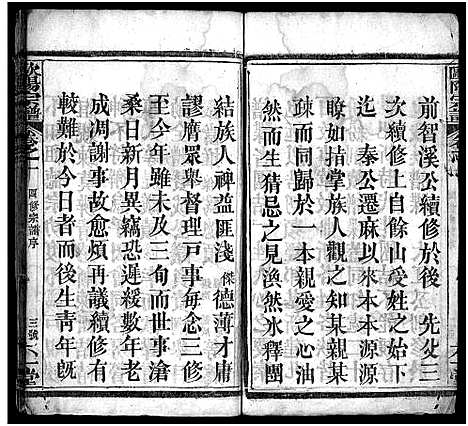 前智溪公續修於後 先殳三
次續修上自餘山受姓之始下
迄 泰公遷麻以來本本源源
瞭如指掌族人觀之知某親某
疎而同歸於一本親愛之心油
然而生猜忌之見渙然氷釋團
結族人裨益匪淺 傑德薄才庸
謬膺眾舉督理戸事每念三修
至今年雖未及三旬而世事滄
桑日新月異竊恐遲緩數年老
成凋謝事故愈煩再議續修有
較難於今日者而後生青年旣
歐陽宗譜 卷之一 四修宗譜序 三號 堂